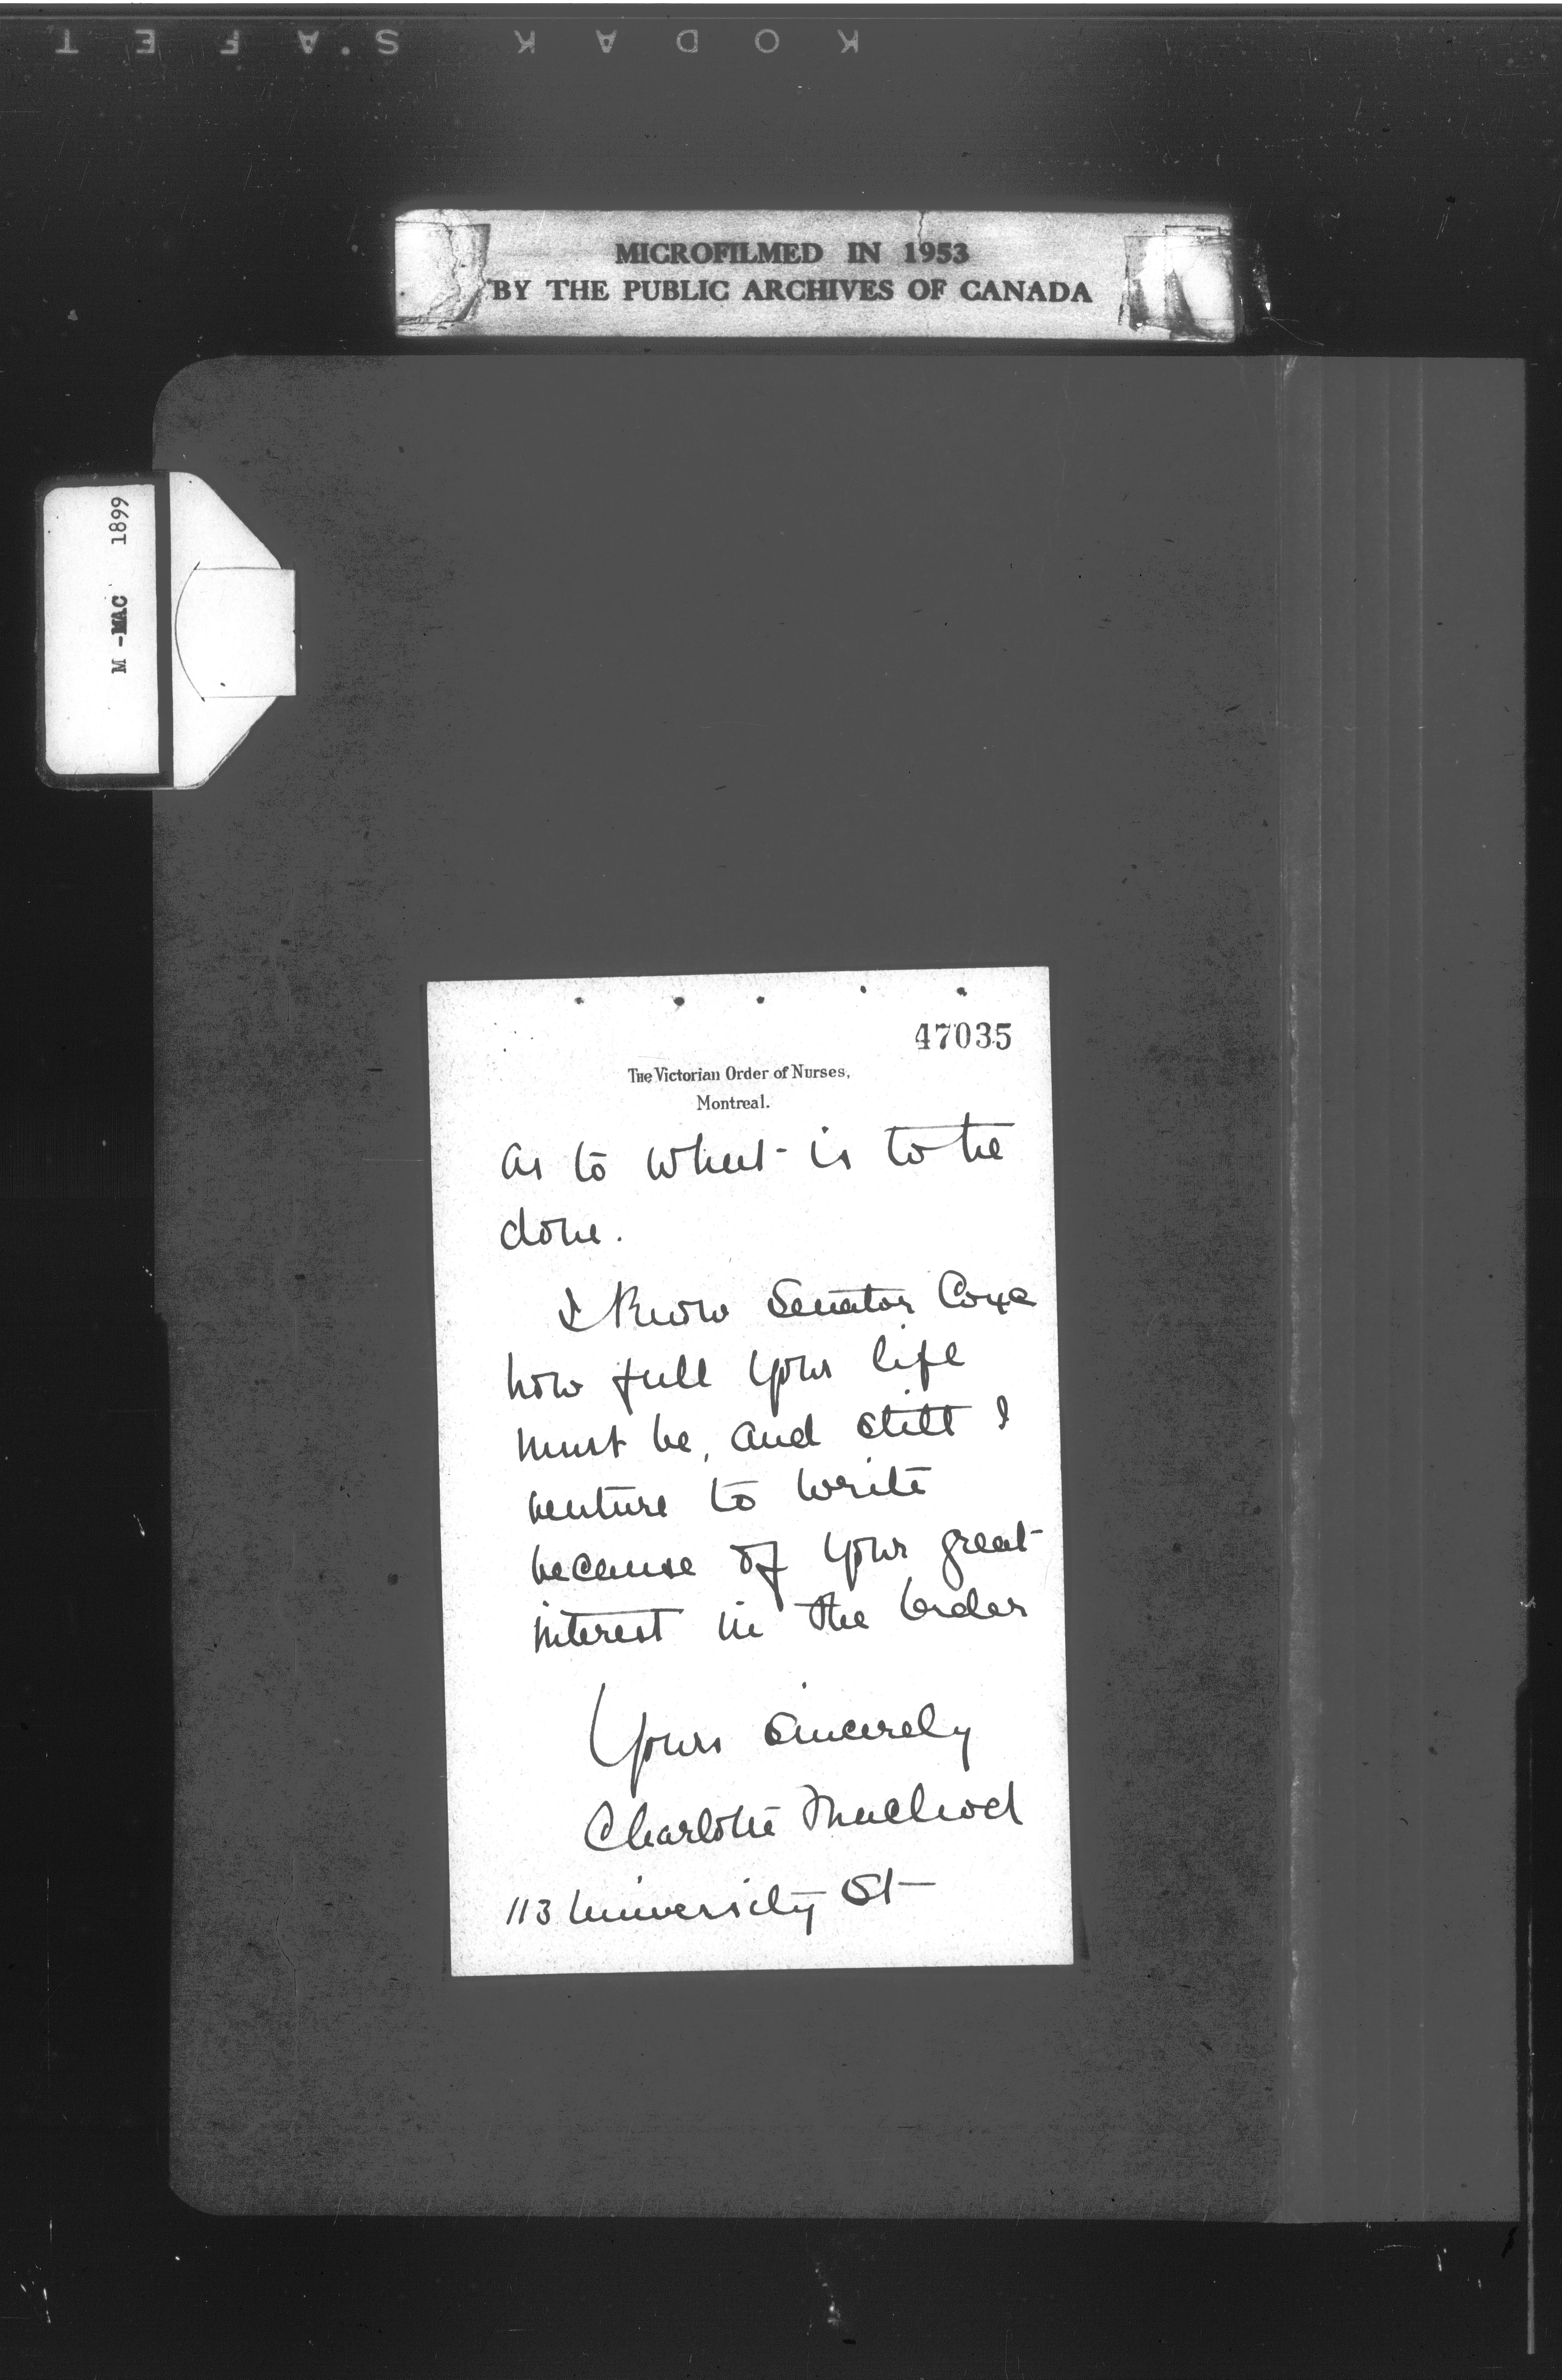 KODAK SAFET
MICROFILMED IN 1953
BY THE PUBLIC ARCHIVES OF CANADA
M -MAC 1899
47035
The Victorian Order of Nurses,
Montreal.
as to what is to be
done.
I know Senator Coxe
how full your life
must be, and still I
venture to write
because of your great
interest in the Order
Yours sincerely
Charlotte Macleod
113 University St